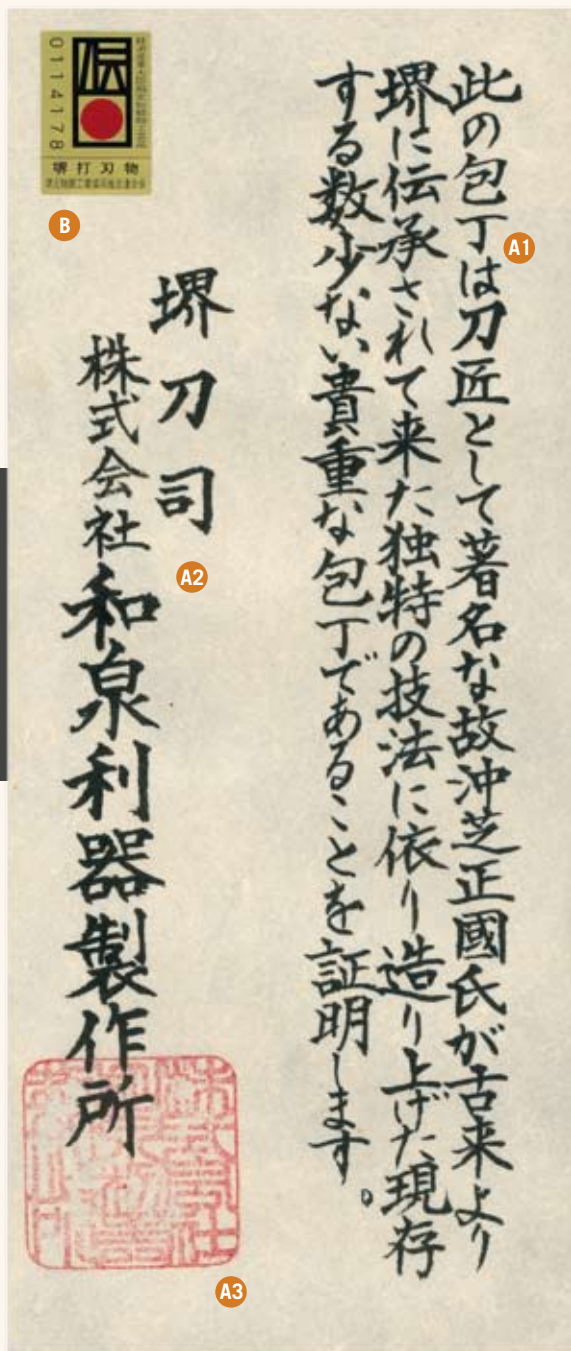 此の包丁は刀匠として著名な故沖芝正國氏が古来より
堺に伝承されて来た独特の技法に依り造り上げた現存
する数少ない貴重な包丁であることを証明します。
堺刀司
株式会社和泉利器製作所
0114178
伝
堺打刃物
A1
A2
A3
B